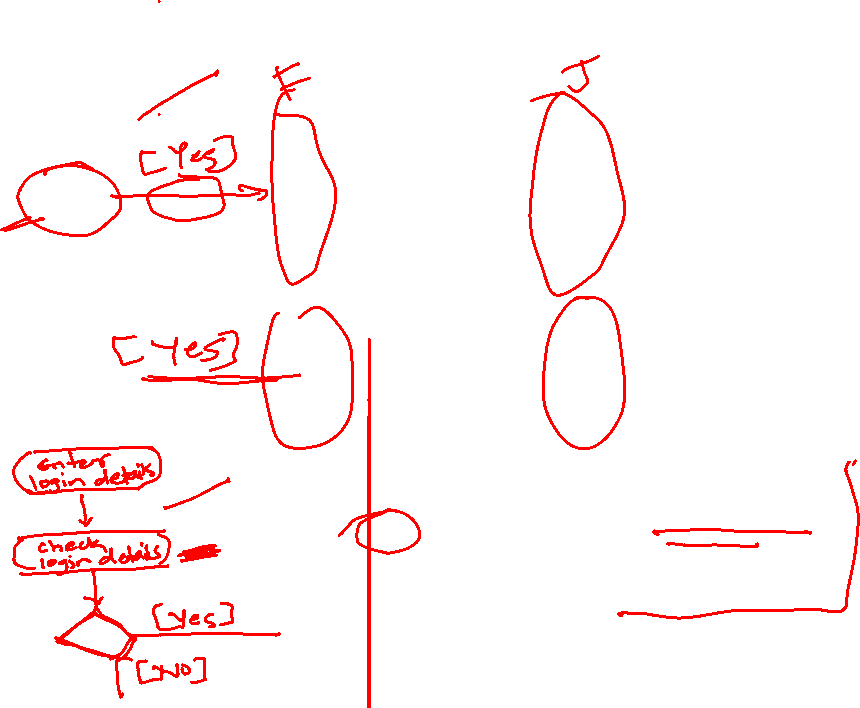 J
[Yes]
[Yes]
enter
login details
check
login details
[Yes]
[NO]